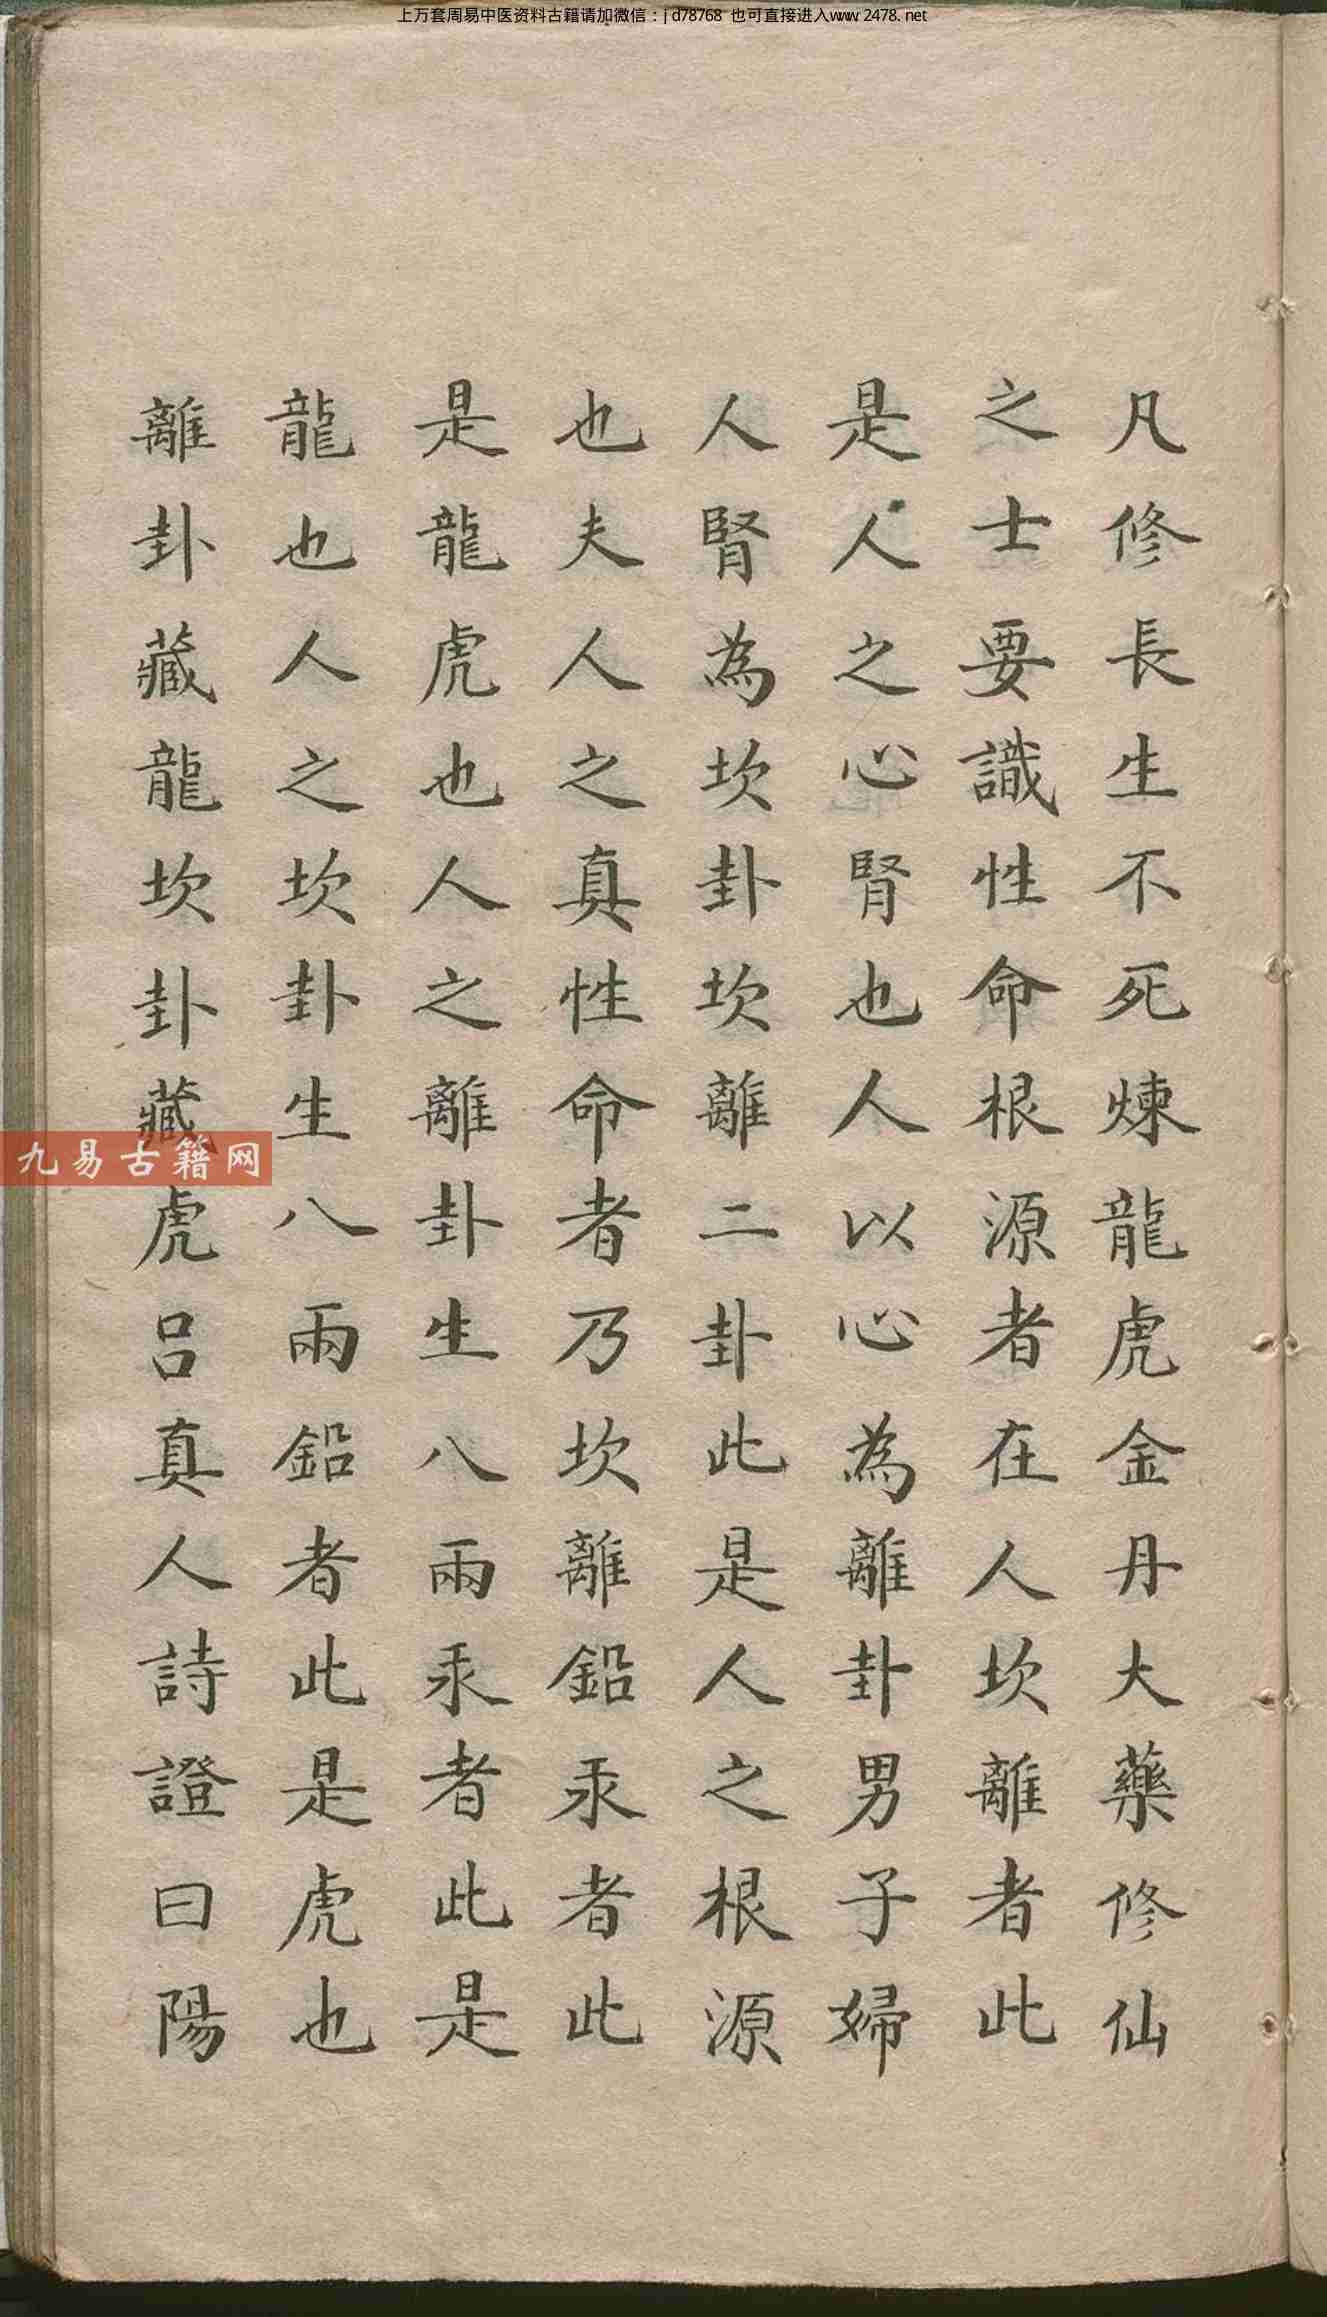 上万套周易中医资料古籍请加微信：jd78768 也可直接进入www.2478.net
凡修長生不死煉龍虎金丹大藥修仙
之士要識性命根源者在人坎離者此
是人之心腎也人以心為離卦男子婦
人腎為坎卦坎離二卦此是人之根源
也夫人之真性命者乃坎離鉛汞者此
是龍虎也人之離卦生八兩汞者此是
龍也人之坎卦生八兩鉛者此是虎也
離卦藏龍坎卦藏虎呂真人詩證曰陽
九易古籍网